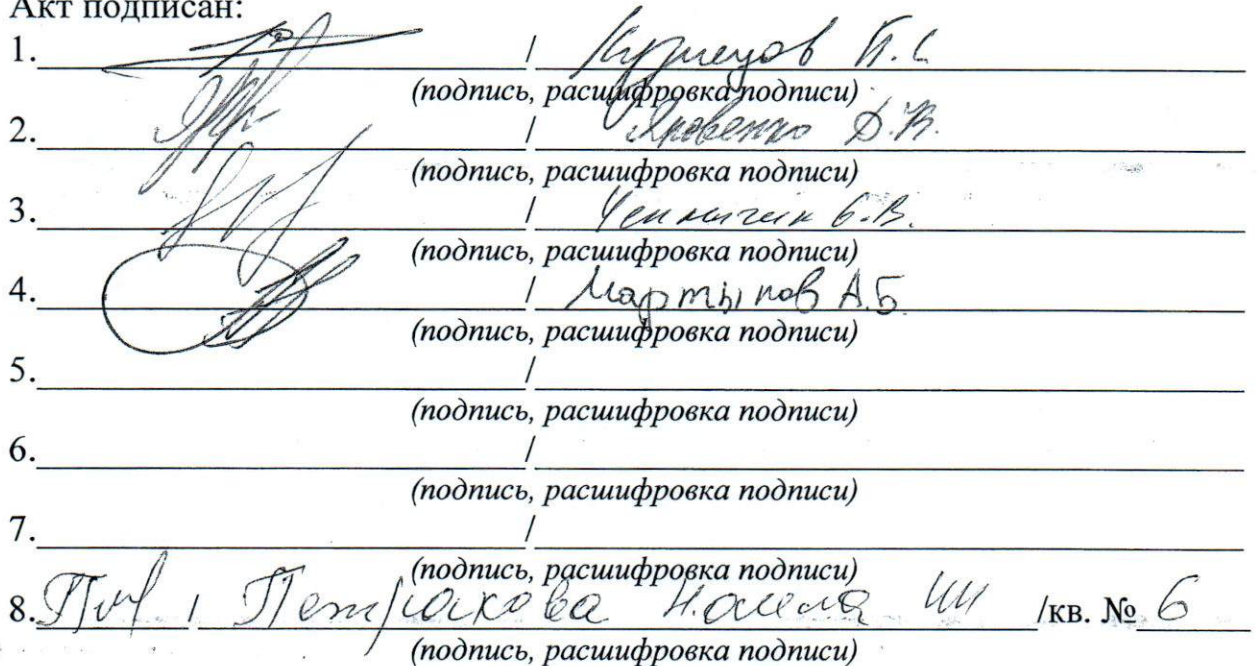 Акт подписан:
1. / Кузнецов П.С
(подпись, расшифровка подписи)
2. / Яковенко Д.В.
(подпись, расшифровка подписи)
3. /
(подпись, расшифровка подписи)
4. / Мартынов А.Б
(подпись, расшифровка подписи)
5. /
(подпись, расшифровка подписи)
6. /
(подпись, расшифровка подписи)
7. /
(подпись, расшифровка подписи)
8. / Петракова /кв. № 6
(подпись, расшифровка подписи)